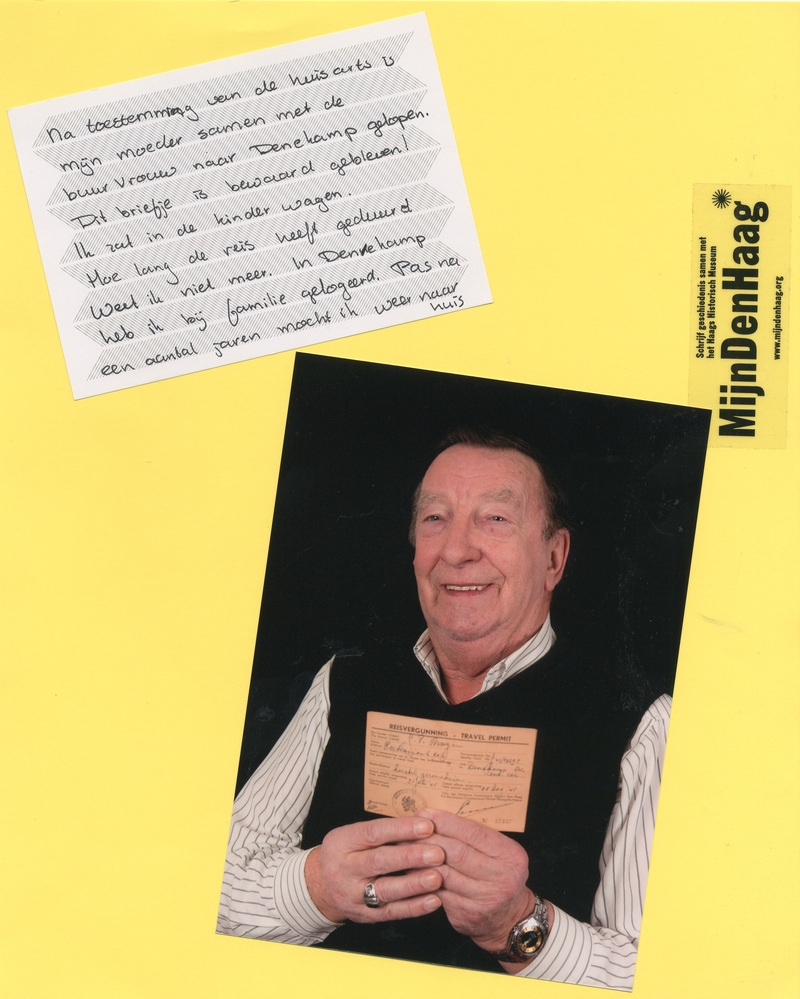 Na toestemming van de huisarts is
mijn moeder samen met de
buurvrouw naar Denekamp gelopen.
Dit briefje is bewaard gebleven!
Ik zat in de kinder wagen.
Hoe lang de reis heeft geduurd
weet ik niet meer. In Denekamp
heb ik bij familie gelogeerd. Pas na
een aantal jaren mocht ik weer naar
huis
Schrijf geschiedenis samen met
het Haags Historisch Museum
MijnDenHaag
www.mijndenhaag.org
REISVERGUNNING - TRAVEL PERMIT